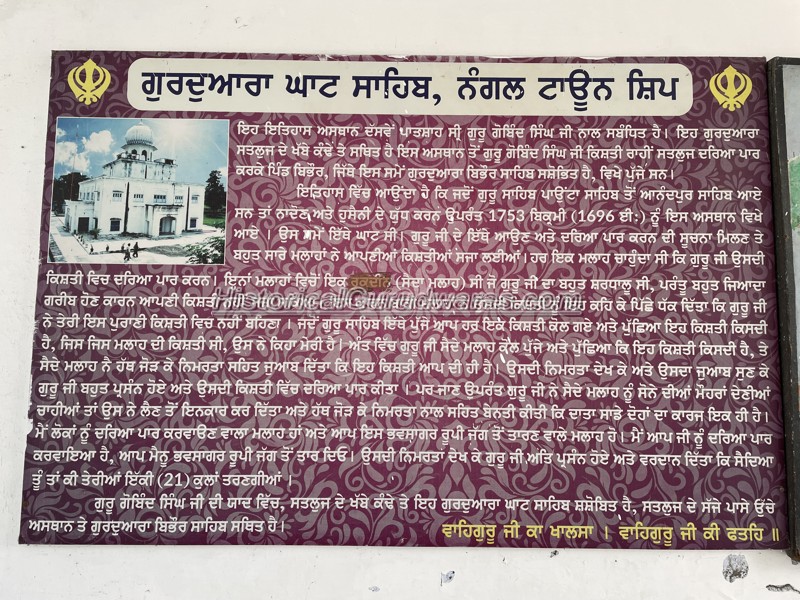 ਗੁਰਦੁਆਰਾ ਘਾਟ ਸਾਹਿਬ, ਨੰਗਲ ਟਾਊਨ ਸ਼ਿਪ
ਇਹ ਇਤਿਹਾਸ ਅਸਥਾਨ ਦੱਸਵੇਂ ਪਾਤਸ਼ਾਹ ਸ੍ਰੀ ਗੁਰੂ ਗੋਬਿੰਦ ਸਿੰਘ ਜੀ ਨਾਲ ਸਬੰਧਿਤ ਹੈ। ਇਹ ਗੁਰਦੁਆਰਾ
ਸਤਲੁਜ ਦੇ ਖੱਬੇ ਕੰਢੇ ਤੇ ਸਥਿਤ ਹੈ ਇਸ ਅਸਥਾਨ ਤੋਂ ਗੁਰੂ ਗੋਬਿੰਦ ਸਿੰਘ ਜੀ ਕਿਸ਼ਤੀ ਰਾਹੀਂ ਸਤਲੁਜ ਦਰਿਆ ਪਾਰ
ਕਰਕੇ ਪਿੰਡ ਬਿਭੌਰ, ਜਿੱਥੇ ਇਸ ਸਮੇਂ ਗੁਰਦੁਆਰਾ ਬਿਭੌਰ ਸਾਹਿਬ ਸਸ਼ੋਭਿਤ ਹੈ, ਵਿਖੇ ਪੁੱਜੇ ਸਨ।
ਇਤਿਹਾਸ ਵਿੱਚ ਆਉਂਦਾ ਹੈ ਕਿ ਜਦੋਂ ਗੁਰੂ ਸਾਹਿਬ ਪਾਉਂਟਾ ਸਾਹਿਬ ਤੋਂ ਆਨੰਦਪੁਰ ਸਾਹਿਬ ਆਏ
ਸਨ ਤਾਂ ਨਾਦੌਣ ਅਤੇ ਹੁਸੈਨੀ ਦੇ ਯੁੱਧ ਕਰਨ ਉਪਰੰਤ 1753 ਬਿਕ੍ਰਮੀ (1696 ਈ:) ਨੂੰ ਇਸ ਅਸਥਾਨ ਵਿਖੇ
ਆਏ । ਉਸ ਸਮੇਂ ਇੱਥੇ ਘਾਟ ਸੀ। ਗੁਰੂ ਜੀ ਦੇ ਇੱਥੇ ਆਉਣ ਅਤੇ ਦਰਿਆ ਪਾਰ ਕਰਨ ਦੀ ਸੂਚਨਾ ਮਿਲਣ ਤੇ
ਬਹੁਤ ਸਾਰੇ ਮਲਾਹਾਂ ਨੇ ਆਪਣੀਆਂ ਕਿਸ਼ਤੀਆਂ ਸਜਾ ਲਈਆਂ। ਹਰ ਇਕ ਮਲਾਹ ਚਾਹੁੰਦਾ ਸੀ ਕਿ ਗੁਰੂ ਜੀ ਉਸਦੀ
ਕਿਸ਼ਤੀ ਵਿਚ ਦਰਿਆ ਪਾਰ ਕਰਨ। ਇਨ੍ਹਾਂ ਮਲਾਹਾਂ ਵਿਚੋਂ ਇਕ ਰੁਕਦੀਨ (ਸੈਦਾ ਮਲਾਹ) ਸੀ ਜੋ ਗੁਰੂ ਜੀ ਦਾ ਬਹੁਤ ਸ਼ਰਧਾਲੂ ਸੀ, ਪਰੰਤੂ ਬਹੁਤ ਜਿਆਦਾ
ਗਰੀਬ ਹੋਣ ਕਾਰਨ ਆਪਣੀ ਕਿਸ਼ਤੀ ਕਹਿ ਕੇ ਪਿੱਛੇ ਧੱਕ ਦਿੱਤਾ ਕਿ ਗੁਰੂ ਜੀ
HistoricalGurudwaras.com
ਨੇ ਤੇਰੀ ਇਸ ਪੁਰਾਣੀ ਕਿਸ਼ਤੀ ਵਿਚ ਨਹੀਂ ਬਹਿਣਾ । ਜਦੋਂ ਗੁਰੂ ਸਾਹਿਬ ਇੱਥੇ ਪੁੱਜੇ ਆਪ ਹਰ ਇਕ ਕਿਸ਼ਤੀ ਕੋਲ ਗਏ ਅਤੇ ਪੁੱਛਿਆ ਇਹ ਕਿਸ਼ਤੀ ਕਿਸਦੀ
ਹੈ, ਜਿਸ ਜਿਸ ਮਲਾਹ ਦੀ ਕਿਸ਼ਤੀ ਸੀ, ਉਸ ਨੇ ਕਿਹਾ ਮੇਰੀ ਹੈ। ਅੰਤ ਵਿੱਚ ਗੁਰੂ ਜੀ ਸੈਦੇ ਮਲਾਹ ਕੋਲ ਪੁੱਜੇ ਅਤੇ ਪੁੱਛਿਆ ਕਿ ਇਹ ਕਿਸ਼ਤੀ ਕਿਸਦੀ ਹੈ, ਤੇ
ਸੈਦੇ ਮਲਾਹ ਨੈ ਹੱਥ ਜੋੜ ਕੇ ਨਿਮਰਤਾ ਸਹਿਤ ਜੁਆਬ ਦਿੱਤਾ ਕਿ ਇਹ ਕਿਸ਼ਤੀ ਆਪ ਦੀ ਹੀ ਹੈ। ਉਸਦੀ ਨਿਮਰਤਾ ਦੇਖ ਕੇ ਅਤੇ ਉਸਦਾ ਜੁਆਬ ਸੁਣ ਕੇ
ਗੁਰੂ ਜੀ ਬਹੁਤ ਪ੍ਰਸੰਨ ਹੋਏ ਅਤੇ ਉਸਦੀ ਕਿਸ਼ਤੀ ਵਿੱਚ ਦਰਿਆ ਪਾਰ ਕੀਤਾ । ਪਾਰ ਜਾਣ ਉਪਰੰਤ ਗੁਰੂ ਜੀ ਨੇ ਸੈਦੇ ਮਲਾਹ ਨੂੰ ਸੋਨੇ ਦੀਆਂ ਮੌਹਰਾਂ ਦੇਣੀਆਂ
ਚਾਹੀਆਂ ਤਾਂ ਉਸ ਨੇ ਲੈਣ ਤੋਂ ਇਨਕਾਰ ਕਰ ਦਿੱਤਾ ਅਤੇ ਹੱਥ ਜੋੜ ਕੇ ਨਿਮਰਤਾ ਨਾਲ ਸਹਿਤ ਬੇਨਤੀ ਕੀਤੀ ਕਿ ਦਾਤਾ ਸਾਡੇ ਦੋਹਾਂ ਦਾ ਕਾਰਜ ਇਕ ਹੀ ਹੈ।
ਮੈਂ ਲੋਕਾਂ ਨੂੰ ਦਰਿਆ ਪਾਰ ਕਰਵਾਉਣ ਵਾਲਾ ਮਲਾਹ ਹਾਂ ਅਤੇ ਆਪ ਇਸ ਭਵਸਾਗਰ ਰੂਪੀ ਜੱਗ ਤੋਂ ਤਾਰਣ ਵਾਲੇ ਮਲਾਹ ਹੋ। ਮੈਂ ਆਪ ਜੀ ਨੂੰ ਦਰਿਆ ਪਾਰ
ਕਰਵਾਇਆ ਹੈ, ਆਪ ਮੈਨੂ ਭਵਸਾਗਰ ਰੂਪੀ ਜੱਗ ਤੋਂ ਤਾਰ ਦਿਓ। ਉਸਦੀ ਨਿਮਰਤਾਂ ਦੇਖ ਕੇ ਗੁਰੂ ਜੀ ਅਤਿ ਪ੍ਰਸੰਨ ਹੋਏ ਅਤੇ ਵਰਦਾਨ ਦਿੱਤਾ ਕਿ ਸੈਦਿਆ
ਤੂੰ ਤਾਂ ਕੀ ਤੇਰੀਆਂ ਇੱਕੀ (21) ਕੁਲਾਂ ਤਰਣਗੀਆਂ ।
ਗੁਰੂ ਗੋਬਿੰਦ ਸਿੰਘ ਜੀ ਦੀ ਯਾਦ ਵਿੱਚ, ਸਤਲੁਜ ਦੇ ਖੱਬੇ ਕੰਢੇ ਤੇ ਇਹ ਗੁਰਦੁਆਰਾ ਘਾਟ ਸਾਹਿਬ ਸਸ਼ੋਭਿਤ ਹੈ, ਸਤਲੁਜ ਦੇ ਸੱਜੇ ਪਾਸੇ ਉੱਚੇ
ਅਸਥਾਨ ਤੇ ਗੁਰਦੁਆਰਾ ਬਿਭੌਰ ਸਾਹਿਬ ਸਥਿਤ ਹੈ।
ਵਾਹਿਗੁਰੂ ਜੀ ਕਾ ਖਾਲਸਾ । ਵਾਹਿਗੁਰੂ ਜੀ ਕੀ ਫਤਹਿ ॥